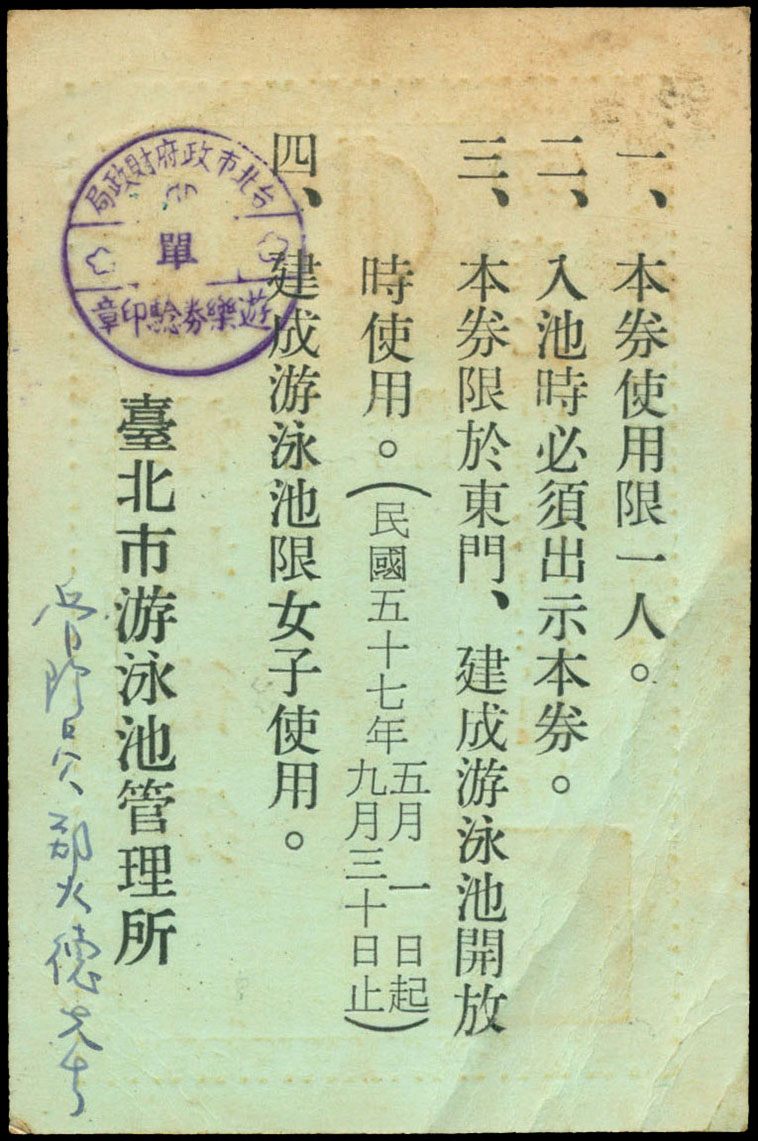 一、本券使用限一人。
二、入池時必須出示本券。
三、本券限於東門、建成游泳池開放
時使用。(民國五十七年五月一日起
九月三十日止)
四、建成游泳池限女子使用。
臺北市游泳池管理所
台北市政府財政局
單
遊樂券驗印章